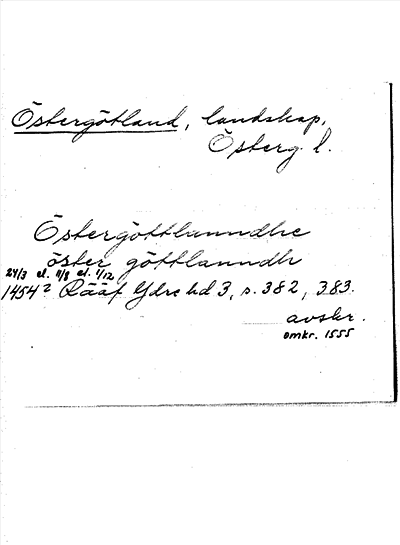 Östergötland, landskap,
Österg. l.
Östergöttlanndhe
öster göttlanndh
24/3 el. 11/8 el. 1/12
1454? Rääf Ydre hd 3, s. 382, 383.
avskr.
omkr. 1555